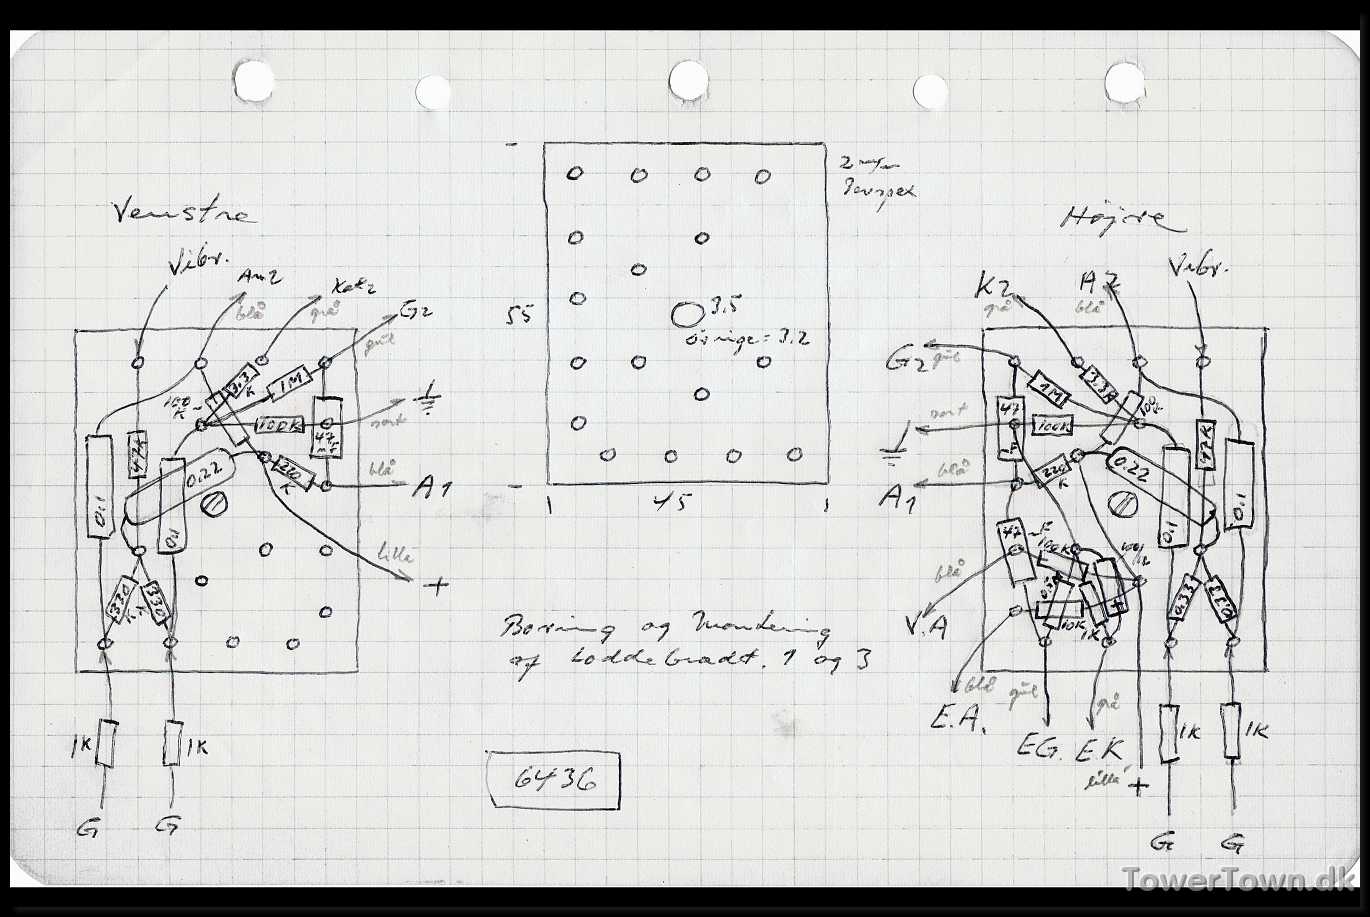 Venstre
Vibr.
An2
blå
Kat2
grå
G2
gul
100
K
3.3
K
1M
100K
47
sort
47K
0.22
220
K
blå
A1
0.1
0.1
lilla
+
330
K
330
K
1K
1K
G
G
2 mm
Perspex
55
3.5
övrige = 3.2
45
Boring og Montering
af Loddebradt. 1 og 3
6436
Højre
K2
grå
A2
blå
Vibr.
G2
gul
1M
3.3K
100K
47
sort
100K
47K
0.22
220
K
blå
A1
0.1
0.1
47
100K
blå
V.A
10K
1K
+
0.33
0.33
blå
gul
grå
E.A.
EG.
E.K
lilla
+
1K
1K
G
G
TowerTown.dk